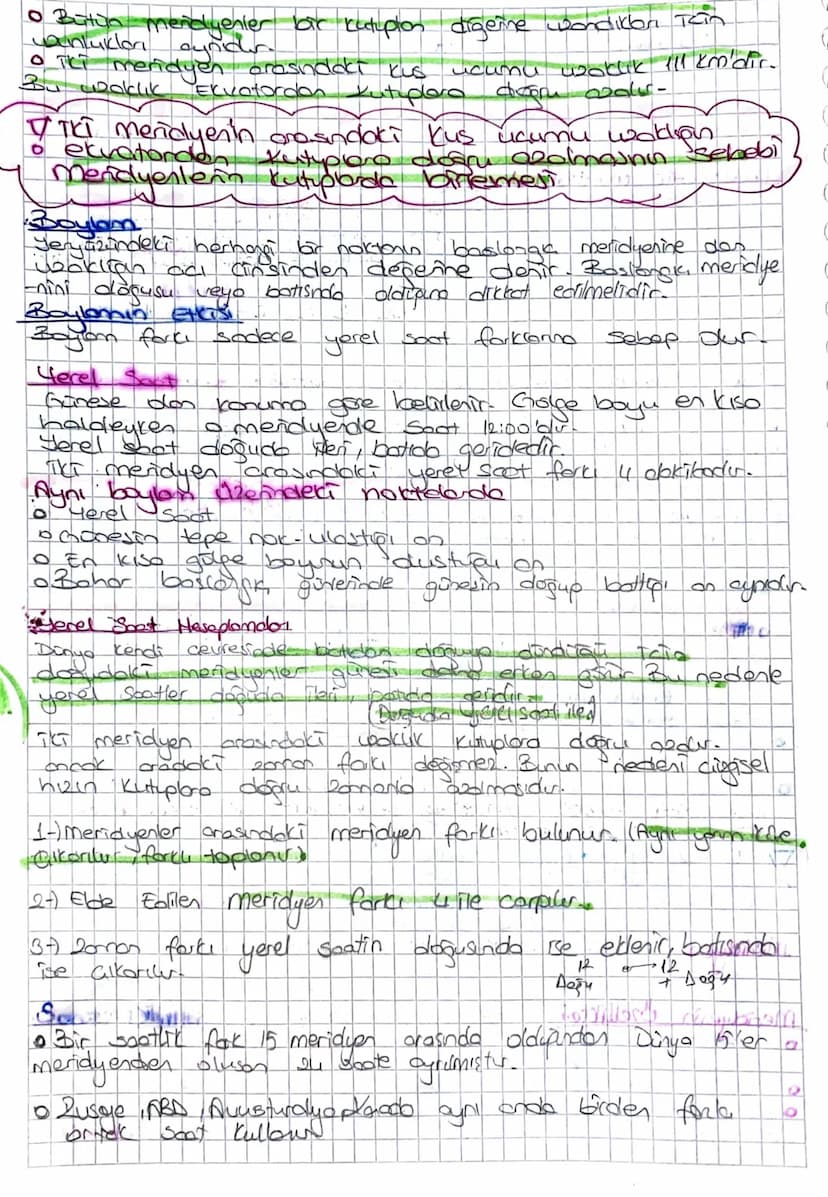 o Bütün meridyenler bir kutuptan diğerine uzandıkları için
uzunlukları aynıdır.
o İki meridyen arasındaki kuş uçumu uzaklık 111 km'dir.
Bu uzaklık Ekvatordan kutuplara doğru azalır-
! İki meridyenin arasındaki kuş uçumu uzaklığın
ekvatordan kutuplara doğru azalmasının sebebi
meridyenlerin kutuplarda birleşmesi
Boylam
Yeryüzündeki herhangi bir noktanın başlangıç meridyenine olan
uzaklığın açı cinsinden değerine denir. Başlangıç meridye
-nini doğusu veya batısında olduğuna dikkat edilmelidir.
Boylamın etkisi
Boylam farkı sadece yerel saat farklarına sebep olur.
Yerel Saat
Güneşe olan konuma göre belirlenir. Gölge boyu en kısa
haldeyken o meridyende saat 12:00'dır.
Yerel saat doğuda ileri, batıda geridedir.
İki meridyen arasındaki yerel saat farkı 4 dakikadır.
Aynı boylam Üzerindeki noktalarda
o Yerel Saat
o Güneşin tepe nok. ulaştığı an
o En kısa gölge boyunun düştüğü an
o Bahar başlangıç günlerinde güneşin doğup battığı an aynıdır
Yerel Saat Hesaplamaları
Dünya kendi çevresinde batıdan doğuya döndüğü için
doğudaki meridyenler güneşi daha erken görür Bu nedenle
yerel saatler doğuda ileri, batıda geridir.
(Doğuda yerel saat ileri)
iki meridyen arasındaki uzaklık kutuplara doğru azalır.
ancak aradaki zaman farkı değişmez. Bunun nedeni çizgisel
hızın kutuplara doğru zamanla azalmasıdır.
1-) Meridyenler arasındaki meridyen farkı bulunur. (Aynı yarım küre
çıkarılır, farklı toplanır)
2-) Elde Edilen meridyen farkı 4 ile çarpılır.
3-) Zaman farkı yerel saatin doğusunda ise eklenir, batısında
ise çıkarılır.
12 12
Doğu + Doğu
o Bir saatlik fark 15 meridyen arasında olduğundan Dünya 15'er
meridyenden oluşan 24 saate ayrılmıştır.
o Rusya, ABD, Avusturalya, Kanada aynı anda birden fazla
ortak saat kullanır